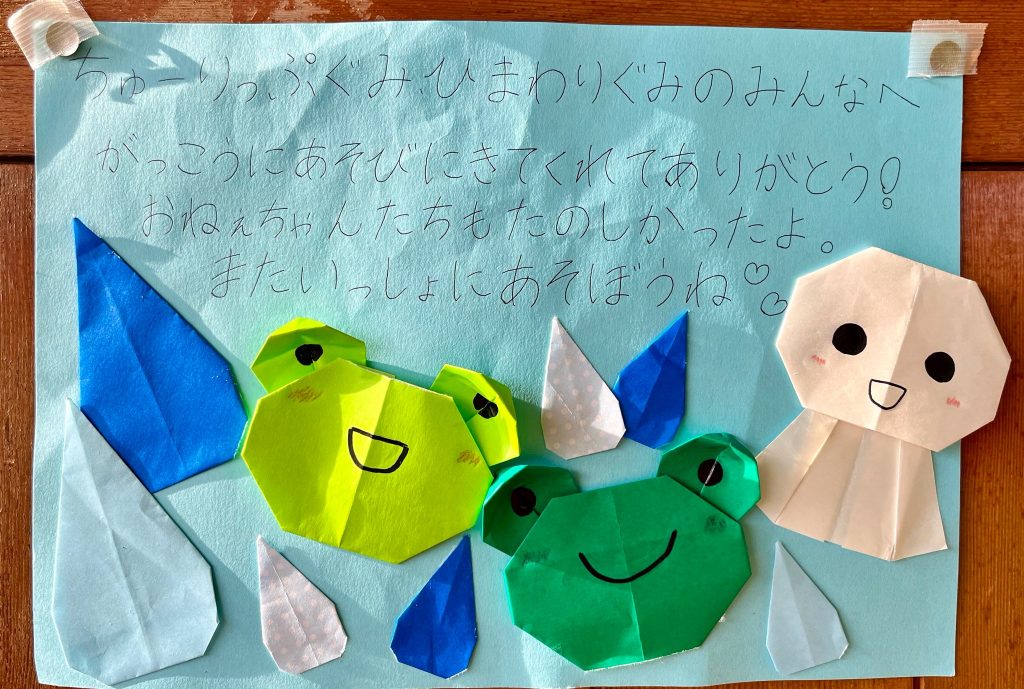 ちゅーりっぷぐみ、ひまわりぐみのみんなへ
がっこうにあそびにきてくれてありがとう!
おねぇちゃんたちもたのしかったよ。
またいっしょにあそぼうね♡♡